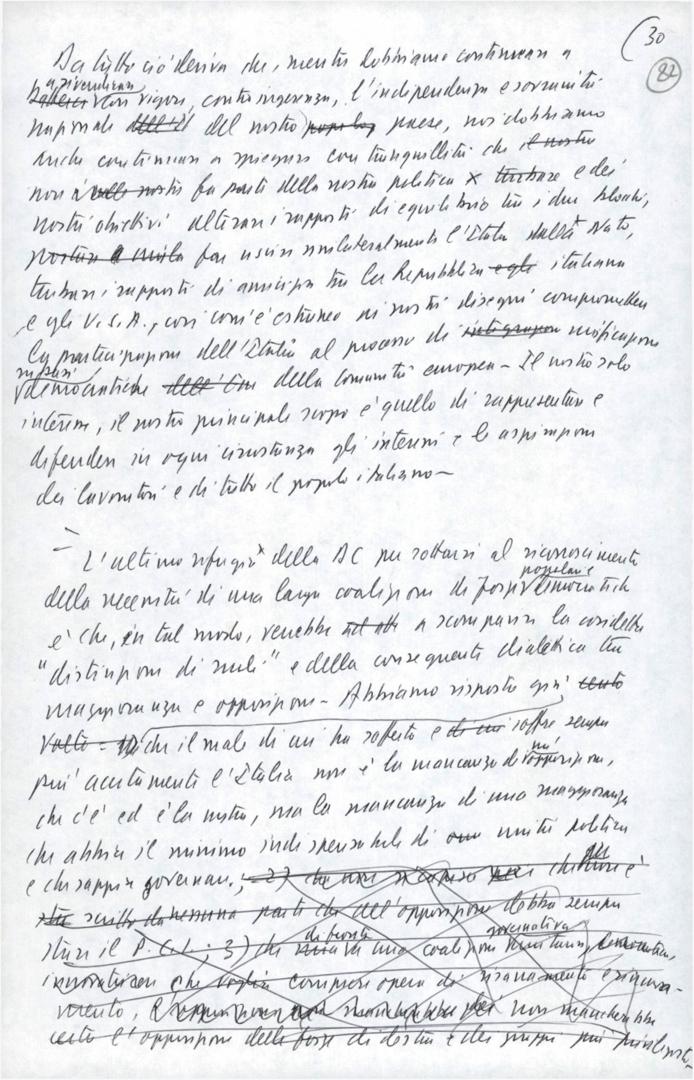 (30
82
Da tutto ciò deriva che, mentre dobbiamo continuare a
rivendicare con vigore, contro ingerenze, l'indipendenza e sovranità
nazionale del nostro paese, noi dobbiamo
anche continuare a spiegare con tranquillità che il nostro
non è nostro fa parte della nostra politica x turbare e dei
nostri obiettivi alterare i rapporti di equilibrio tra i due blocchi,
far uscire unilateralmente l'Italia dalla Nato,
turbare i rapporti di amicizia tra la Repubblica e gli italiana
e gli U.S.A., così com'è estraneo ai nostri disegni compromettere
la partecipazione dell'Italia al processo di integrazione unificazione
democratiche della Comunità europea - Il nostro solo
interesse, il nostro principale scopo è quello di rappresentare e
difendere in ogni circostanza gli interessi e le aspirazioni
dei lavoratori e di tutto il popolo italiano -
L'ultimo rifugio della DC per sottrarsi al riconoscimento
popolari e
della necessità di una larga coalizione di forze democratiche
è che, in tal modo, verrebbe a scomparire la cosidetta
"distinzione di ruoli" e della conseguente dialettica tra
maggioranza e opposizione - Abbiamo risposto già cento
volte - 1) che il male di cui ha sofferto e di cui soffre sempre
più acutamente l'Italia non è la mancanza di opposizione,
che c'è ed è la nostra, ma la mancanza di una maggioranza
che abbia il minimo indispensabile di unità politica
e che sappia governare; 2) che non
scritto da nessuna parte che all'opposizione debba sempre
stare il P.C.I.; 3) che di fronte a una coalizione governativa unitaria, democratica,
innovatrice che voglia compiere opera di risanamento e rinnova-
mento, non mancherebbe
certo l'opposizione delle forze di destra e dei gruppi più privilegiati -